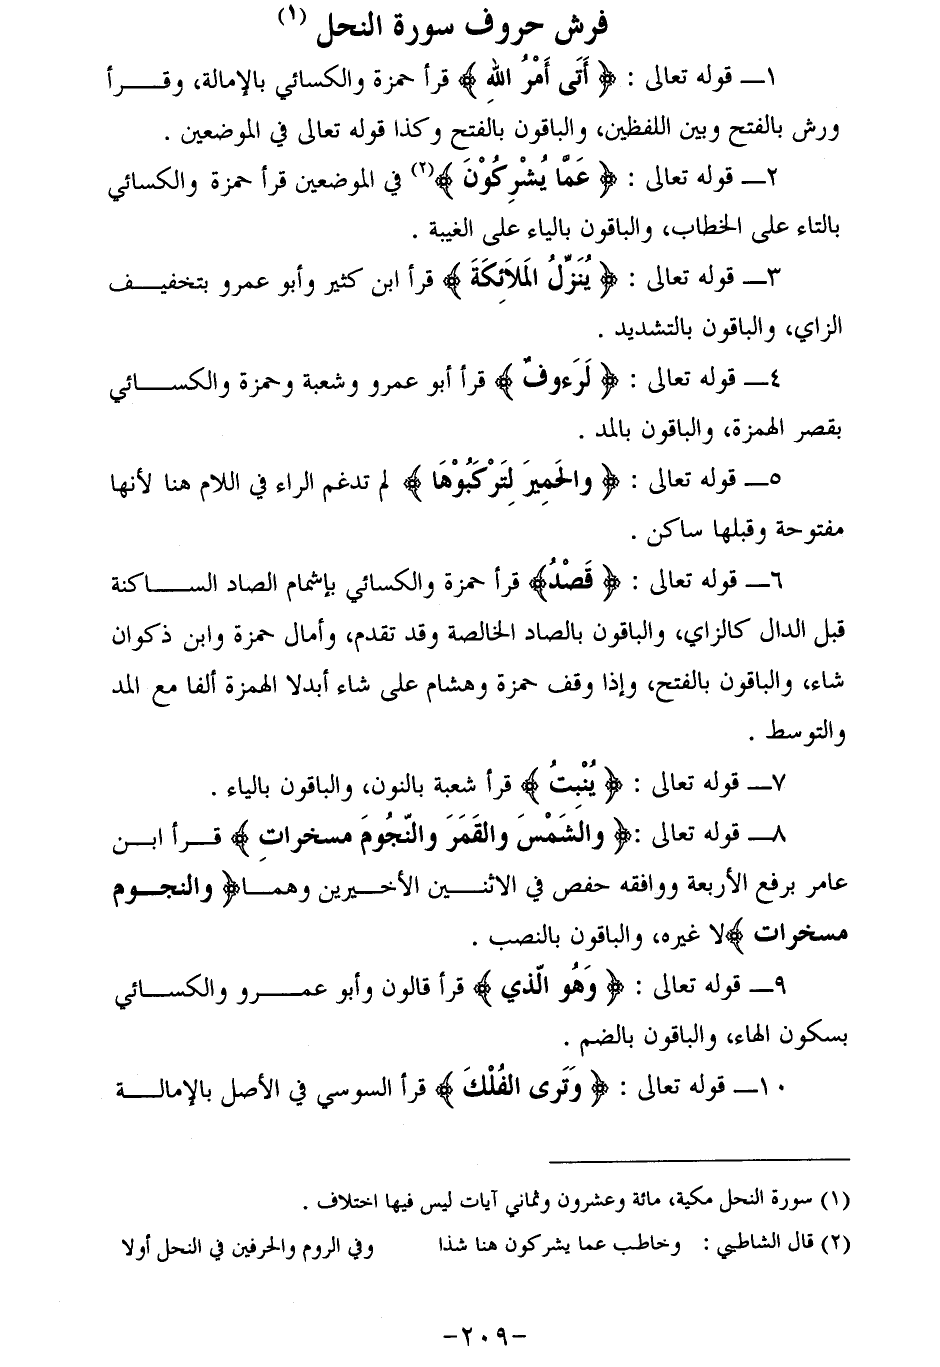 فرش حروف سورة النحل (١)
١ــ قوله تعالى : ﴿ أَتَى أَمْرُ اللهِ ﴾ قرأ حمزة والكسائي بالإمالة، وقـــرأ
ورش بالفتح وبين اللفظين، والباقون بالفتح وكذا قوله تعالى في الموضعين .
٢ــ قوله تعالى : ﴿ عَمَّا يُشْرِكُوْنَ ﴾(٢) في الموضعين قرأ حمزة والكسائي
بالتاء على الخطاب، والباقون بالياء على الغيبة .
٣ــ قوله تعالى : ﴿ يُنَزِّلُ المَلاَئِكَةَ ﴾ قرأ ابن كثير وأبو عمرو بتخفيـــف
الزاي، والباقون بالتشديد .
٤ــ قوله تعالى : ﴿ لَرَءوفٌ ﴾ قرأ أبو عمرو وشعبة وحمزة والكســـائي
بقصر الهمزة، والباقون بالمد .
٥ــ قوله تعالى : ﴿ والحَمِيرَ لِتَرْكَبُوْهَا ﴾ لم تدغم الراء في اللام هنا لأنها
مفتوحة وقبلها ساكن .
٦ــ قوله تعالى : ﴿ قَصْدُ﴾ قرأ حمزة والكسائي بإشمام الصاد الســـاكنة
قبل الدال كالزاي، والباقون بالصاد الخالصة وقد تقدم، وأمال حمزة وابن ذكوان
شاء، والباقون بالفتح، وإذا وقف حمزة وهشام على شاء أبدلا الهمزة ألفا مع المد
والتوسط .
٧ــ قوله تعالى : ﴿ يُنْبِتُ ﴾ قرأ شعبة بالنون، والباقون بالياء .
٨ــ قوله تعالى :﴿ والشَمْسَ والقَمَرَ والنّجُومَ مسخراتِ ﴾ قـــرأ ابـــن
عامر برفع الأربعة ووافقه حفص في الاثنـــين الأخـــيرين وهمـــا﴿ والنجـــوم
مسخرات ﴾لا غيره، والباقون بالنصب .
٩ــ قوله تعالى : ﴿ وَهُو الّذي ﴾ قرأ قالون وأبو عمـــرو والكســـائي
بسكون الهاء، والباقون بالضم .
١٠ــ قوله تعالى : ﴿ وَتَرى الفُلْكَ ﴾ قرأ السوسي في الأصل بالإمالـــة
(١) سورة النحل مكية، مائة وعشرون وثماني آيات ليس فيها اختلاف .
(٢) قال الشاطبي : وخاطب عما يشركون هنا شذا وفي الروم والحرفين في النحل أولا
-٢٠٩-